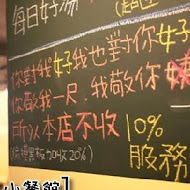 每日好湯
你對我好我也對你好
你敬我一尺 我敬你一
所以本店不收10%
服務
小餐館】